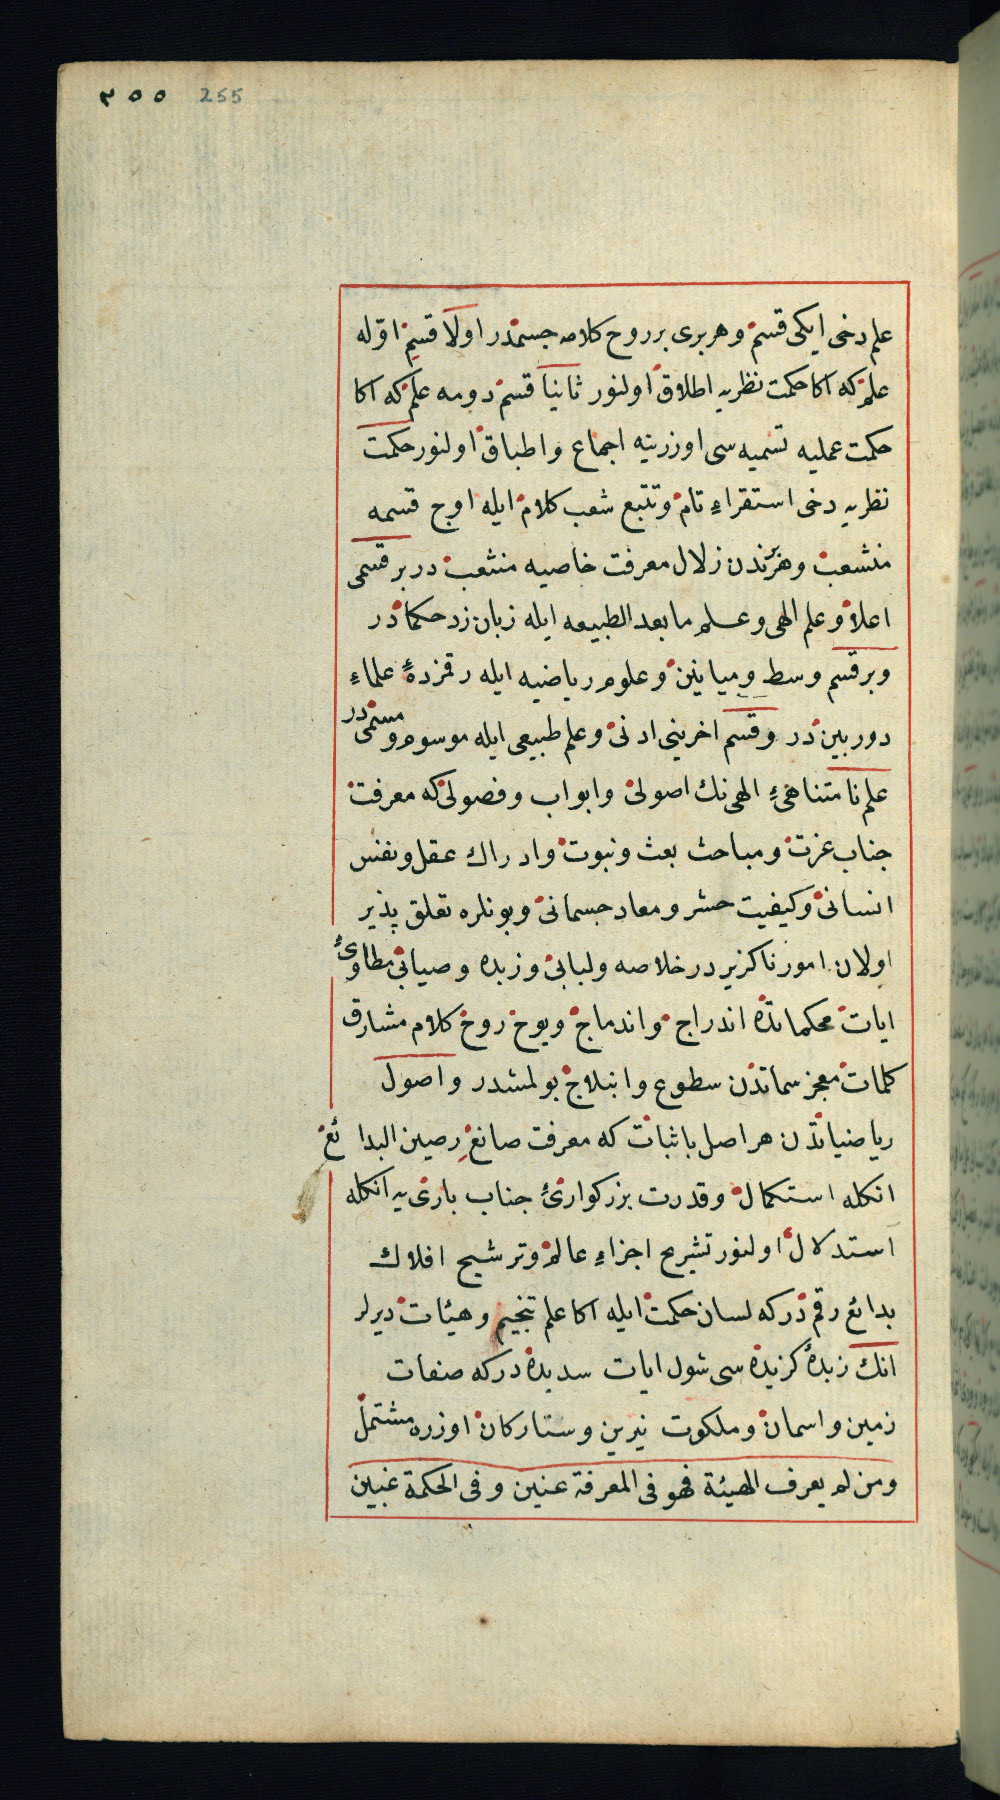 ٢٥٥ 255
علم دخی ایکی قسم و هر بری بر روح کلامه جسمدر اولا قسم اوّله
علم که اکا حکمت نظریه اطلاق اولنور ثانیا قسم دومه علم که اکا
حکمت عملیه تسمیه سی اوزرینه اجماع و اطباق اولنور حکمت
نظریه دخی استقراء تام و تتبع شعب کلام ایله اوج قسمه
منشعب و هر برندن زلال معرفت خاصیه منثعب در بر قسمی
اعلا و علم الهی و علم ما بعد الطبیعه ایله زبان زد حکمادر
و بر قسم وسط و میانین و علوم ریاضیه ایله رقمزدهٔ علماء
دوربین در و قسم اخرینی ادنی و علم طبیعی ایله موسوم و مسمی در
علم نامتناهیء الهی نك اصولی و ابواب و فصولی که معرفت
جناب عزت و مباحث بعث و نبوت و ادراك عقل و نفس
انسانی و کیفیت حشر و معاد جسمانی و بونلره تعلق پذیر
اولان امور ناکزیر در خلاصه و لبابی و زبده و صیابی مطاویٔ
ایات محکماتده اندراج و اندماج و یوح روح کلام مشارق
کلمات معجز سماتدن سطوع و انبلاج بولمشدر و اصول
ریاضیاتدن هر اصل باثبات که معرفت صانع رصین البدائع
انکله استکمال و قدرت بزرکواریٔ جناب باری یه انکله
استدلال اولنور تشریح اجزاء عالم و ترشیح افلاك
بدائع رقم در که لسان حکمت ایله اکا علم تنجیم و هیئات دیرلر
انك زبدهٔ کزیده سی شول ایات سدیده در که صفات
زمین و اسمان و ملکوت نیرین و ستارکان اوزره مشتمل
ومن لم یعرف الهیئة فهو فی المعرفة عنین وفی الحکمة غبین